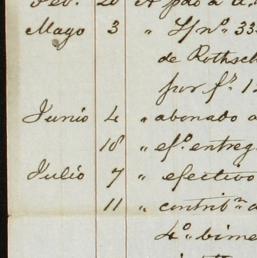 Feb. 20 " A pdo a
Mayo 3 " L/ nº. 33
de Rothsc
por fs. 1
Junio 4 " abonado a
18 " efo. entreg
Julio 7 " efectivo
11 " contribn. a
4º. bime